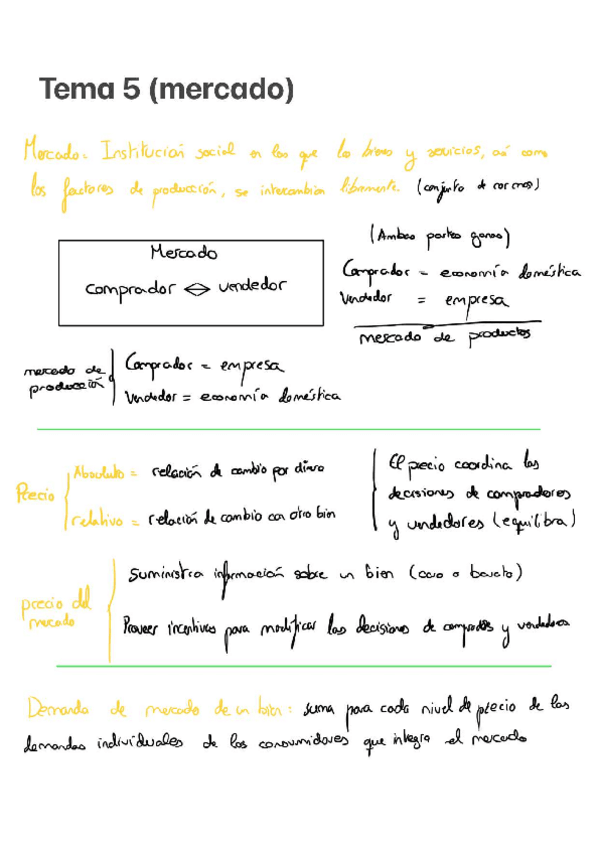 Tema 5 (mercado)
Mercado: Institución social en las que los bienes y servicios, así como
los factores de producción, se intercambian libremente. (conjunto de
(Ambas partes ganan)
Mercado
comprador ⇔ vendedor
Comprador = economía doméstica
Vendedor = empresa
mercado de productos
mercado de
producción
Comprador = empresa
Vendedor = economía doméstica
Precio
Absoluto = relación de cambio por dinero
relativo = relación de cambio con otro bien
El precio coordina las
decisiones de compradores
y vendedores (equilibra)
precio del
mercado
Suministra información sobre un bien (caro o barato)
Proveer incentivos para modificar las decisiones de compradores y vendedores
Demanda de mercado de un bien: suma para cada nivel de precio de las
demandas individuales de los consumidores que integra el mercado